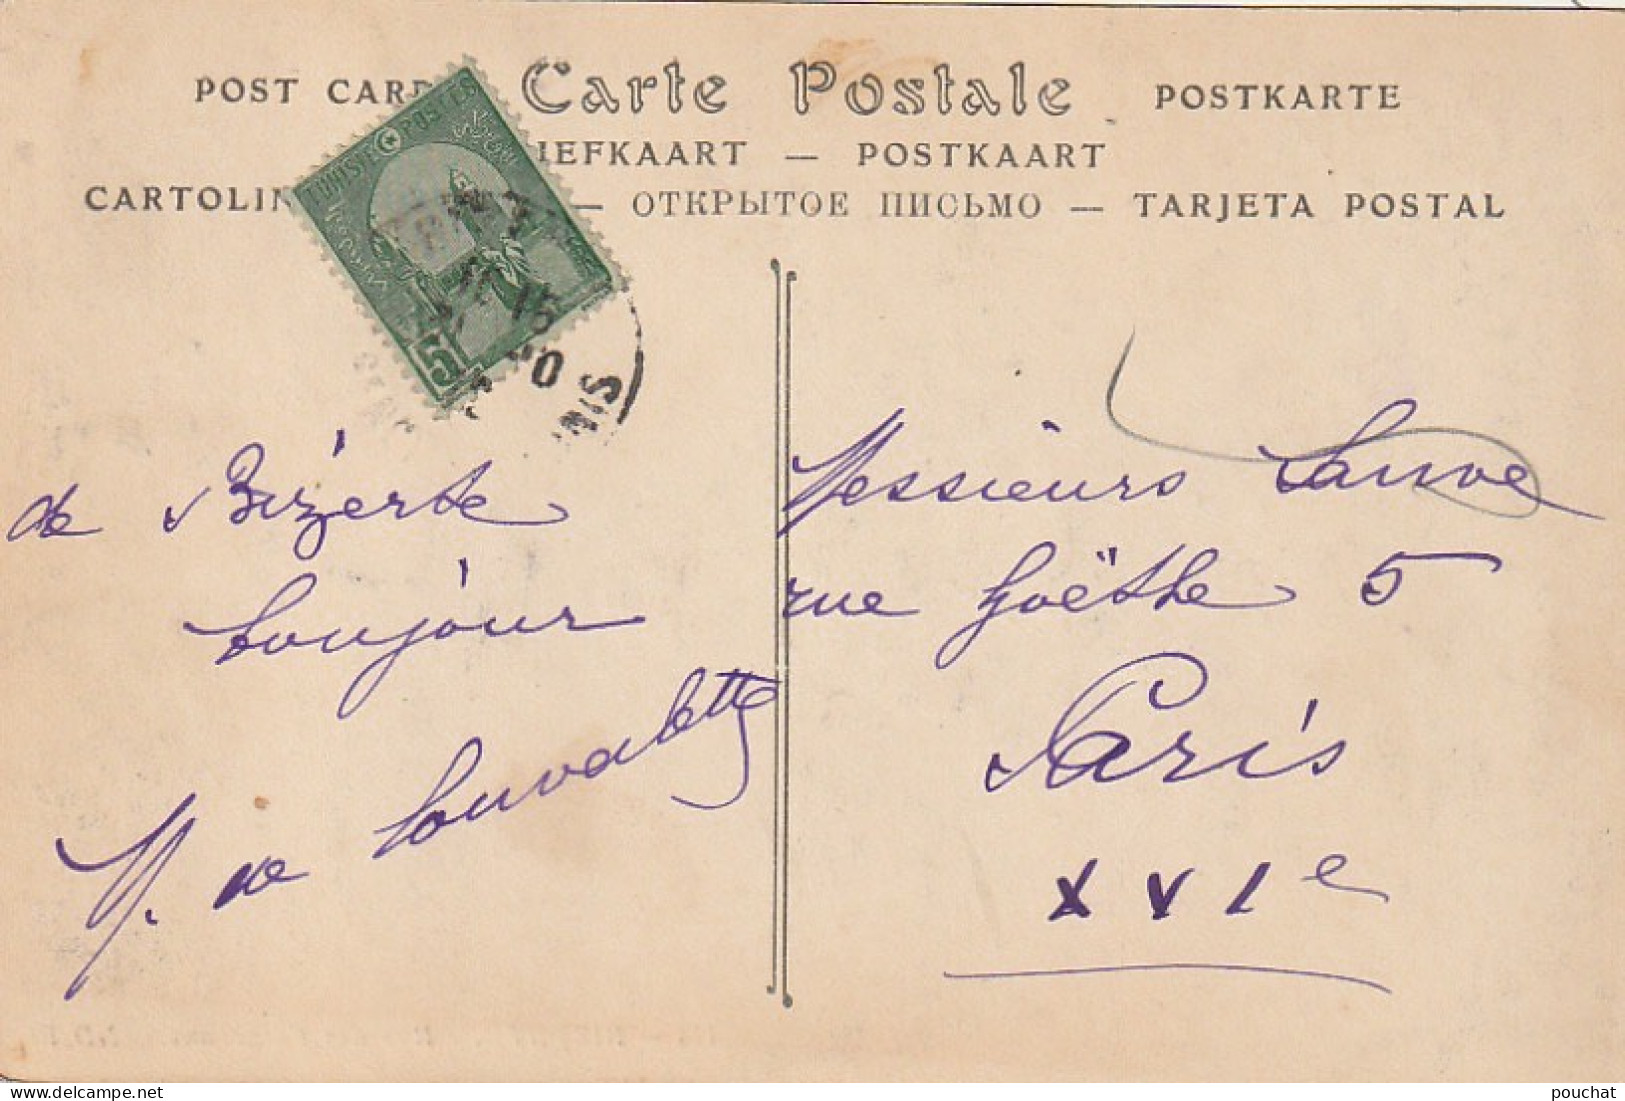 POST CARD Carte Postale POSTKARTE
IEFKAART — POSTKAART
CARTOLIN — ОТКРЫТОЕ ПИСЬМО — TARJETA POSTAL
TUNISIE POSTES
5
de Bizerte
bonjour
Messieurs Sauve
rue Goëthe 5
Paris
XVIe
pouchat